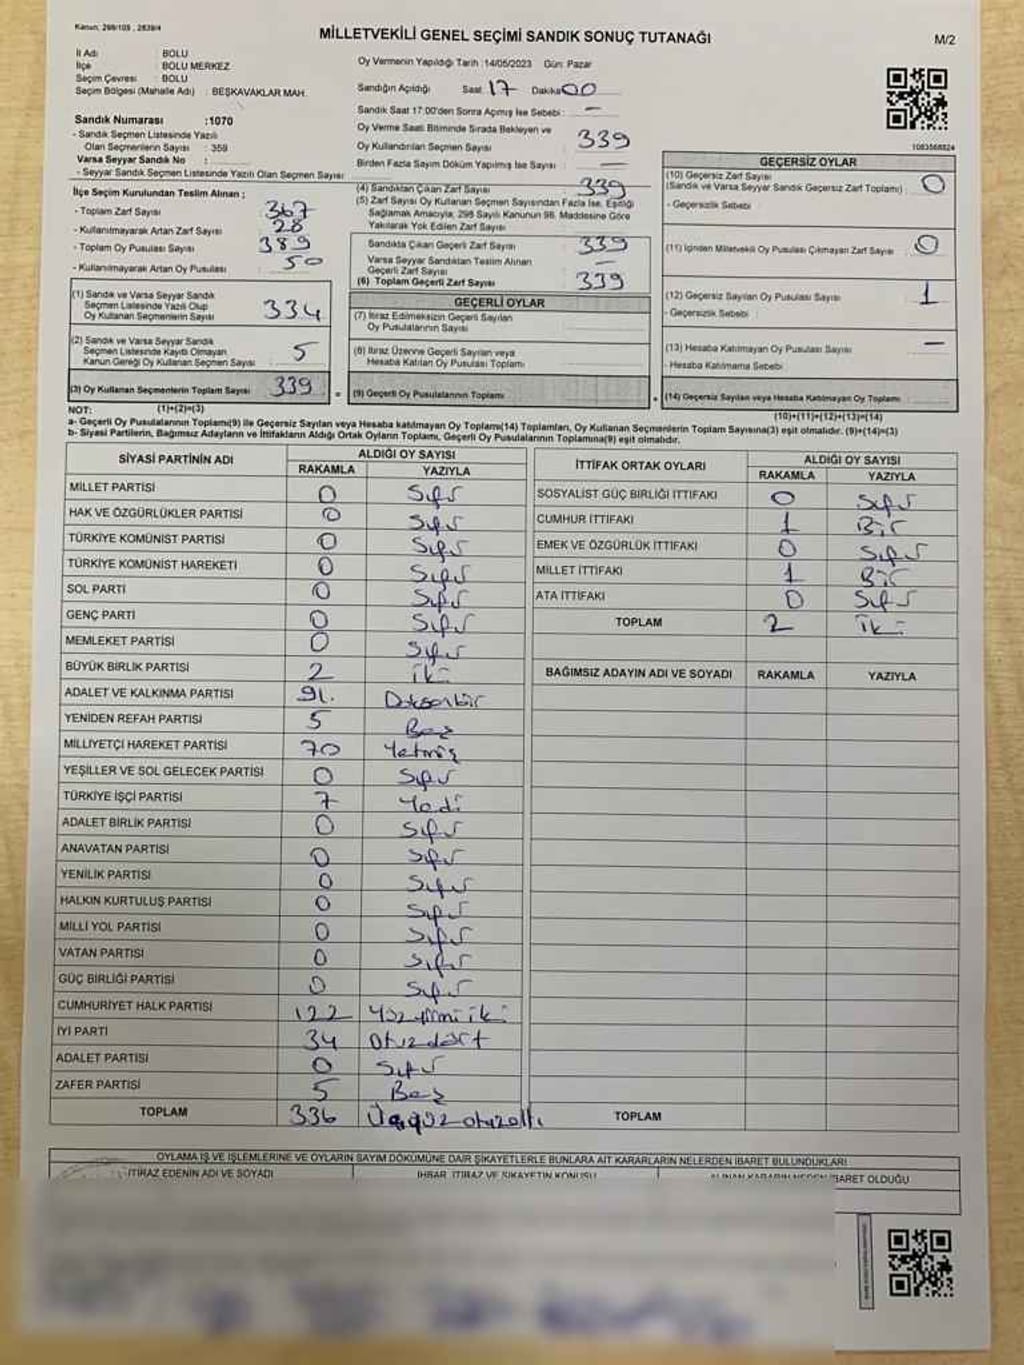 Kanun: 298/105 , 2839/4
MİLLETVEKİLİ GENEL SEÇİMİ SANDIK SONUÇ TUTANAĞI
M/2
İl Adı : BOLU
İlçe : BOLU MERKEZ
Seçim Çevresi : BOLU
Seçim Bölgesi (Mahalle Adı) : BEŞKAVAKLAR MAH.
Oy Vermenin Yapıldığı Tarih : 14/05/2023 Gün: Pazar
Sandığın Açıldığı Saat 17 Dakika 00
Sandık Saat 17:00'den Sonra Açılmış İse Sebebi : —
Oy Verme Saati Bitiminde Sırada Bekleyen ve
Oy Kullandırılan Seçmen Sayısı 339
Birden Fazla Sayım Döküm Yapılmış İse Sayısı —
1083568824
Sandık Numarası : 1070
- Sandık Seçmen Listesinde Yazılı
Olan Seçmenlerin Sayısı : 359
Varsa Seyyar Sandık No :
- Seyyar Sandık Seçmen Listesinde Yazılı Olan Seçmen Sayısı
İlçe Seçim Kurulundan Teslim Alınan ;
- Toplam Zarf Sayısı 367
- Kullanılmayarak Artan Zarf Sayısı 28
- Toplam Oy Pusulası Sayısı 389
- Kullanılmayarak Artan Oy Pusulası 50
(1) Sandık ve Varsa Seyyar Sandık
Seçmen Listesinde Yazılı Olup
Oy Kullanan Seçmenlerin Sayısı 334
(2) Sandık ve Varsa Seyyar Sandık
Seçmen Listesinde Kayıtlı Olmayan
Kanun Gereği Oy Kullanan Seçmen Sayısı 5
(3) Oy Kullanan Seçmenlerin Toplam Sayısı 339
(1)+(2)=(3)
(4) Sandıktan Çıkan Zarf Sayısı 339
(5) Zarf Sayısı Oy Kullanan Seçmen Sayısından Fazla İse, Eşitliği
Sağlamak Amacıyla, 298 Sayılı Kanunun 98. Maddesine Göre
Yakılarak Yok Edilen Zarf Sayısı
Sandıkta Çıkan Geçerli Zarf Sayısı 339
Varsa Seyyar Sandıktan Teslim Alınan
Geçerli Zarf Sayısı —
(6) Toplam Geçerli Zarf Sayısı 339
GEÇERLİ OYLAR
(7) İtiraz Edilmeksizin Geçerli Sayılan
Oy Pusulalarının Sayısı
(8) İtiraz Üzerine Geçerli Sayılan veya
Hesaba Katılan Oy Pusulası Toplamı
= (9) Geçerli Oy Pusulalarının Toplamı
GEÇERSİZ OYLAR
(10) Geçersiz Zarf Sayısı
(Sandık ve Varsa Seyyar Sandık Geçersiz Zarf Toplamı) : 0
- Geçersizlik Sebebi :
(11) İçinden Milletvekili Oy Pusulası Çıkmayan Zarf Sayısı : 0
(12) Geçersiz Sayılan Oy Pusulası Sayısı 1
- Geçersizlik Sebebi :
(13) Hesaba Katılmayan Oy Pusulası Sayısı —
- Hesaba Katılmama Sebebi
+ (14) Geçersiz Sayılan veya Hesaba Katılmayan Oy Toplamı
(10)+(11)+(12)+(13)=(14)
NOT:
a- Geçerli Oy Pusulalarının Toplamı(9) ile Geçersiz Sayılan veya Hesaba katılmayan Oy Toplamı(14) Toplamları, Oy Kullanan Seçmenlerin Toplam Sayısına(3) eşit olmalıdır. (9)+(14)=(3)
b- Siyasi Partilerin, Bağımsız Adayların ve İttifakların Aldığı Ortak Oyların Toplamı, Geçerli Oy Pusulalarının Toplamına(9) eşit olmalıdır.
SİYASİ PARTİNİN ADI ALDIĞI OY SAYISI
RAKAMLA YAZIYLA
MİLLET PARTİSİ 0 Sıfır
HAK VE ÖZGÜRLÜKLER PARTİSİ 0 Sıfır
TÜRKİYE KOMÜNİST PARTİSİ 0 Sıfır
TÜRKİYE KOMÜNİST HAREKETİ 0 Sıfır
SOL PARTİ 0 Sıfır
GENÇ PARTİ 0 Sıfır
MEMLEKET PARTİSİ 0 Sıfır
BÜYÜK BİRLİK PARTİSİ 2 iki
ADALET VE KALKINMA PARTİSİ 91. Doksanbir
YENİDEN REFAH PARTİSİ 5 Beş
MİLLİYETÇİ HAREKET PARTİSİ 70 Yetmiş
YEŞİLLER VE SOL GELECEK PARTİSİ 0 Sıfır
TÜRKİYE İŞÇİ PARTİSİ 7 Yedi
ADALET BİRLİK PARTİSİ 0 Sıfır
ANAVATAN PARTİSİ 0 Sıfır
YENİLİK PARTİSİ 0 Sıfır
HALKIN KURTULUŞ PARTİSİ 0 Sıfır
MİLLİ YOL PARTİSİ 0 Sıfır
VATAN PARTİSİ 0 Sıfır
GÜÇ BİRLİĞİ PARTİSİ 0 Sıfır
CUMHURİYET HALK PARTİSİ 122 Yüz yirmi iki
İYİ PARTİ 34 Otuzdört
ADALET PARTİSİ 0 Sıfır
ZAFER PARTİSİ 5 Beş
TOPLAM 336 Üçyüz otuzaltı
İTTİFAK ORTAK OYLARI ALDIĞI OY SAYISI
RAKAMLA YAZIYLA
SOSYALİST GÜÇ BİRLİĞİ İTTİFAKI 0 Sıfır
CUMHUR İTTİFAKI 1 Bir
EMEK VE ÖZGÜRLÜK İTTİFAKI 0 Sıfır
MİLLET İTTİFAKI 1 Bir
ATA İTTİFAKI 0 Sıfır
TOPLAM 2 iki
BAĞIMSIZ ADAYIN ADI VE SOYADI RAKAMLA YAZIYLA
TOPLAM
OYLAMA İŞ VE İŞLEMLERİNE VE OYLARIN SAYIM DÖKÜMÜNE DAİR ŞİKAYETLERLE BUNLARA AİT KARARLARIN NELERDEN İBARET BULUNDUKLARI
İTİRAZ EDENİN ADI VE SOYADI İHBAR, İTİRAZ VE ŞİKAYETİN KONUSU ALINAN KARARIN NEDEN İBARET OLDUĞU